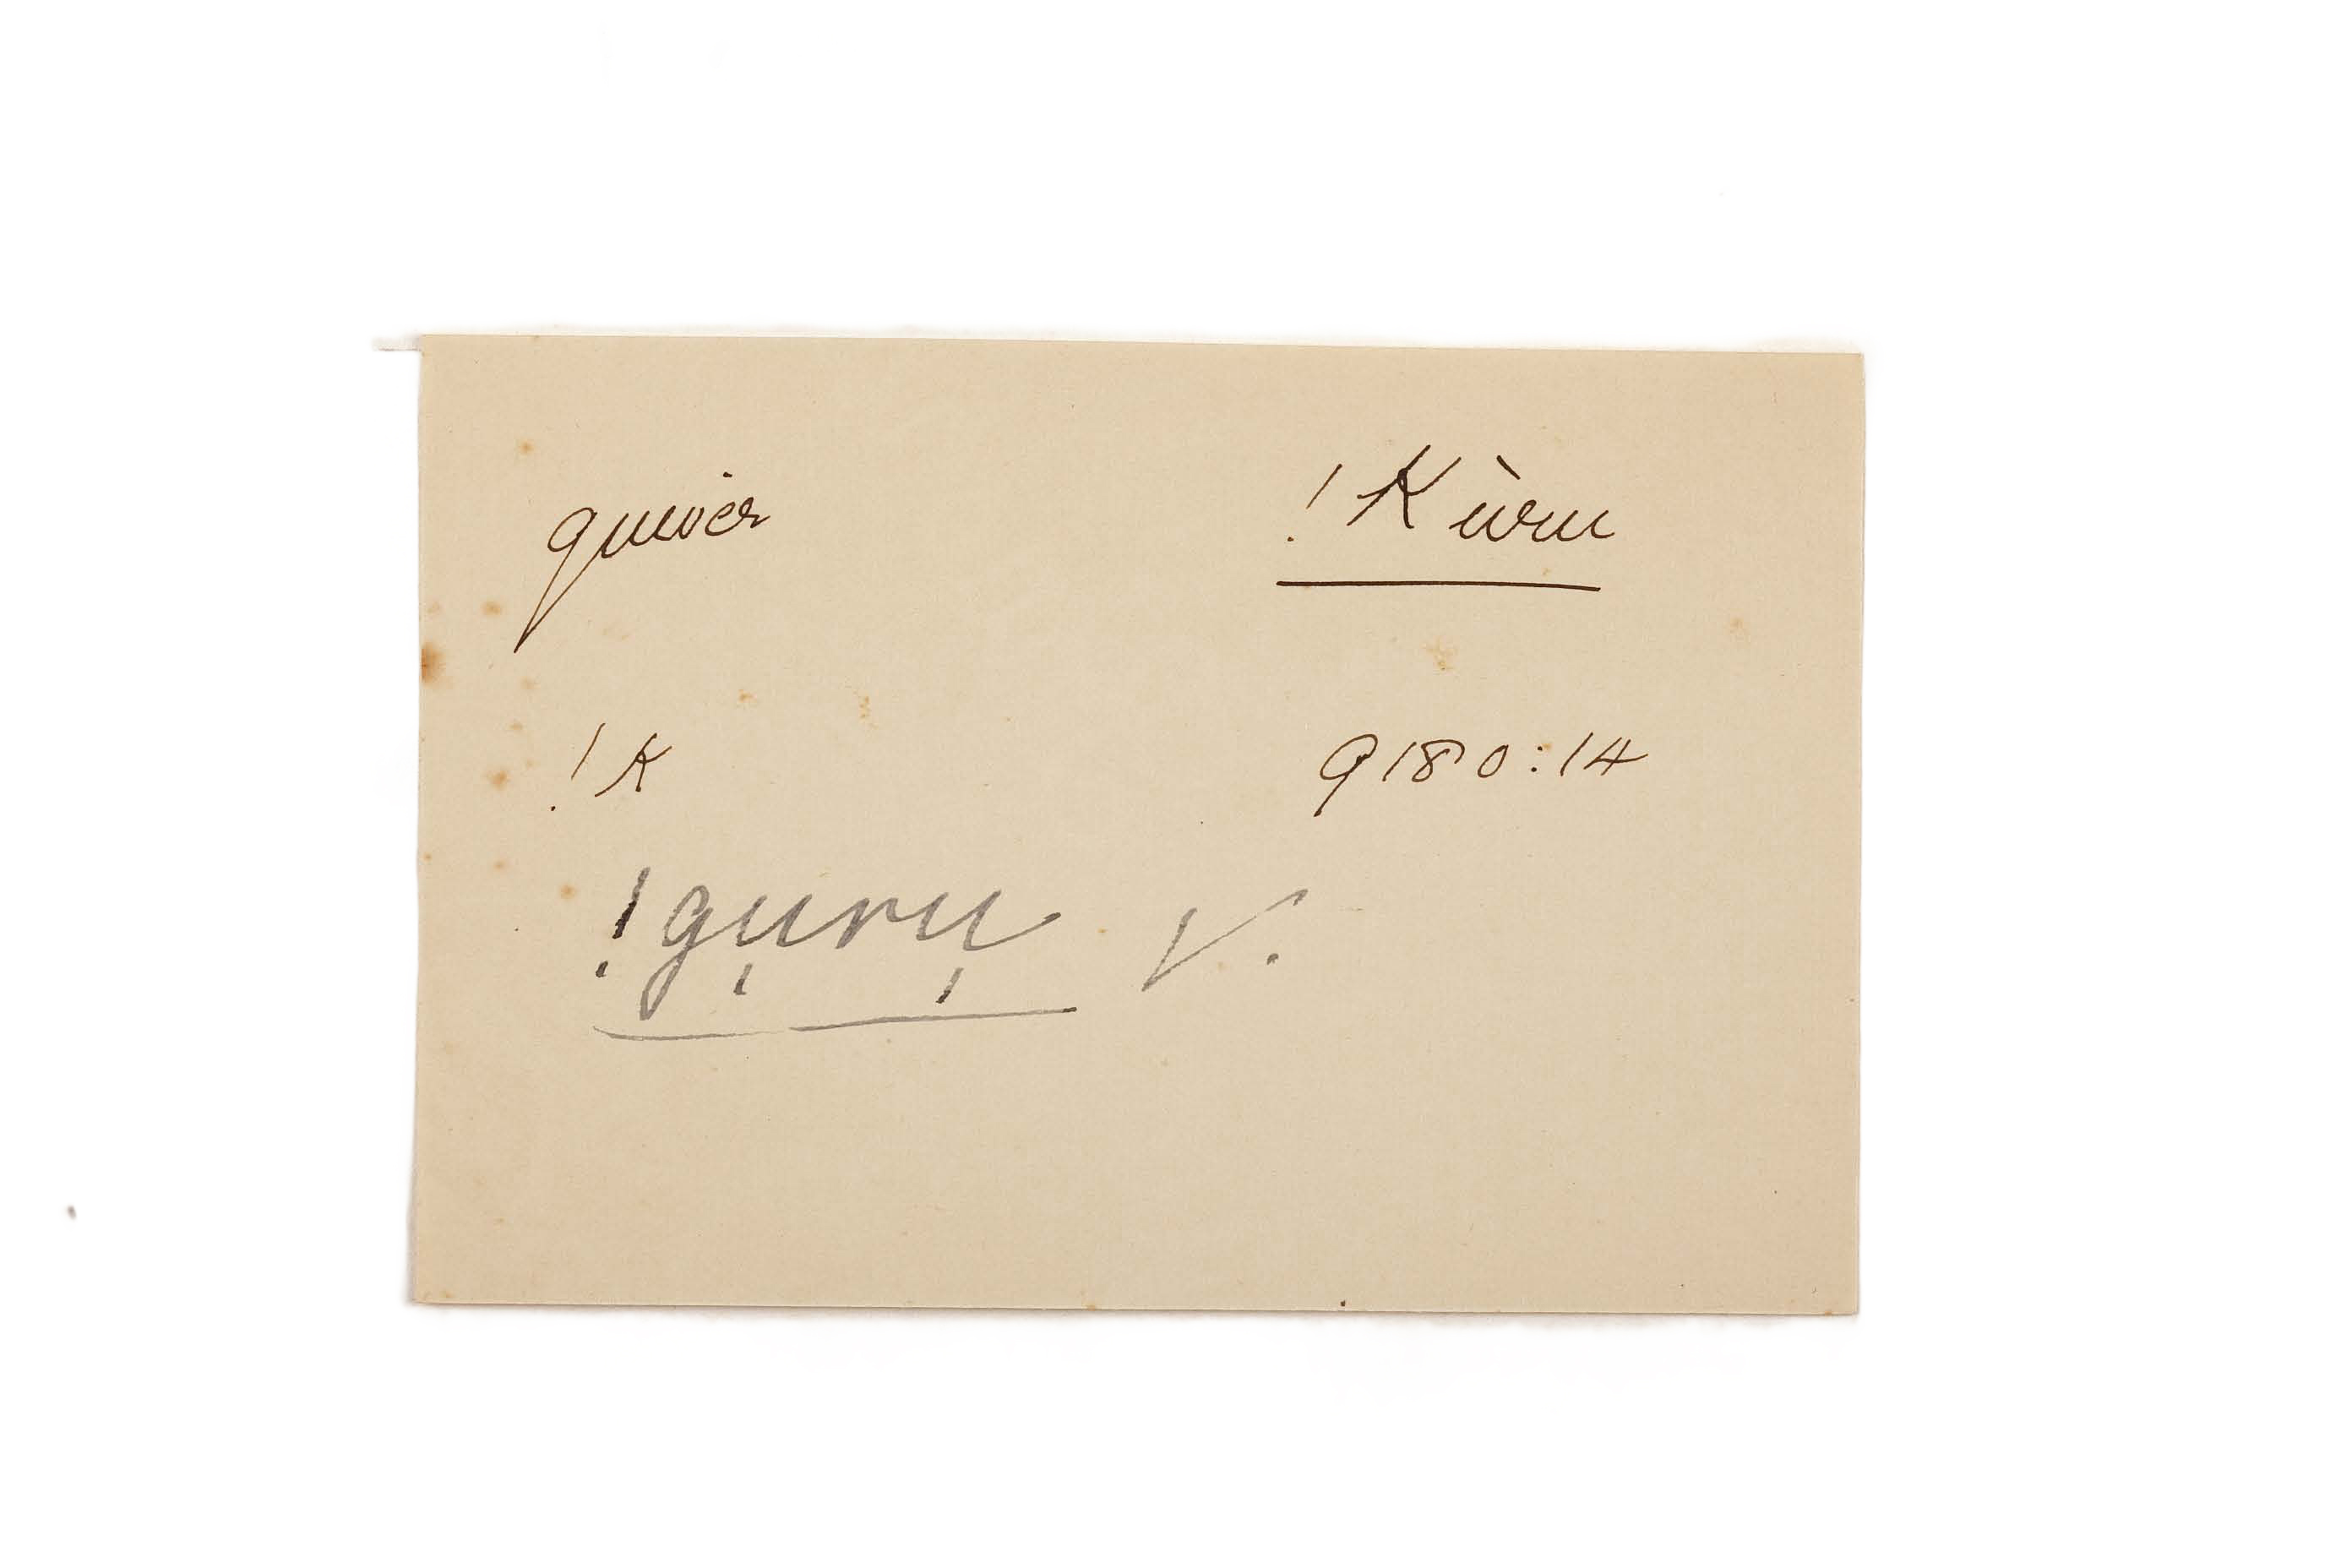 quiver !Kùru
!K 9180:14
!gu̩ru̩ V.